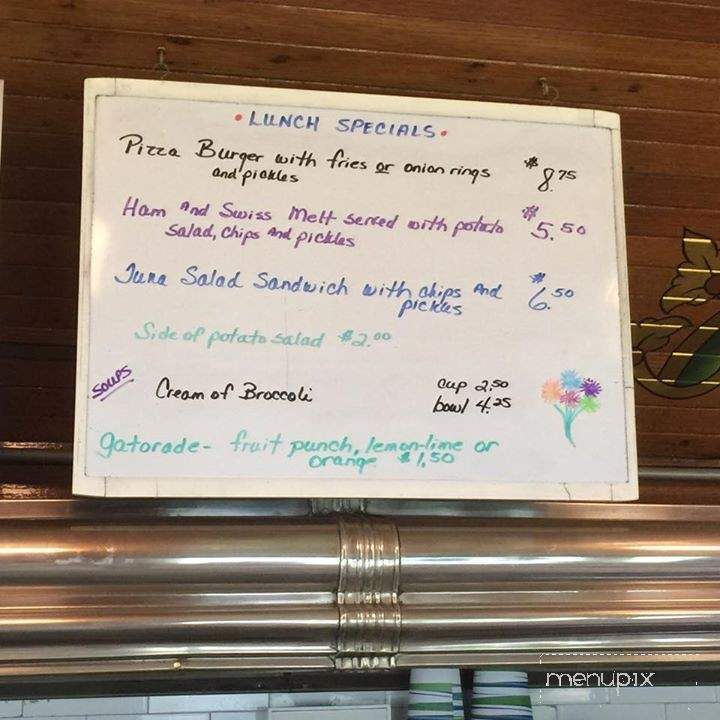 • LUNCH SPECIALS •
Pizza Burger with fries or onion rings $8.75
and pickles
Ham And Swiss Melt served with potato $5.50
Salad, Chips And pickles
Tuna Salad Sandwich with chips And $6.50
pickles
Side of potato salad $2.00
Soups
Cream of Broccoli cup 2.50
bowl 4.25
gatorade- fruit punch, lemon-lime or
orange $1.50
menupix